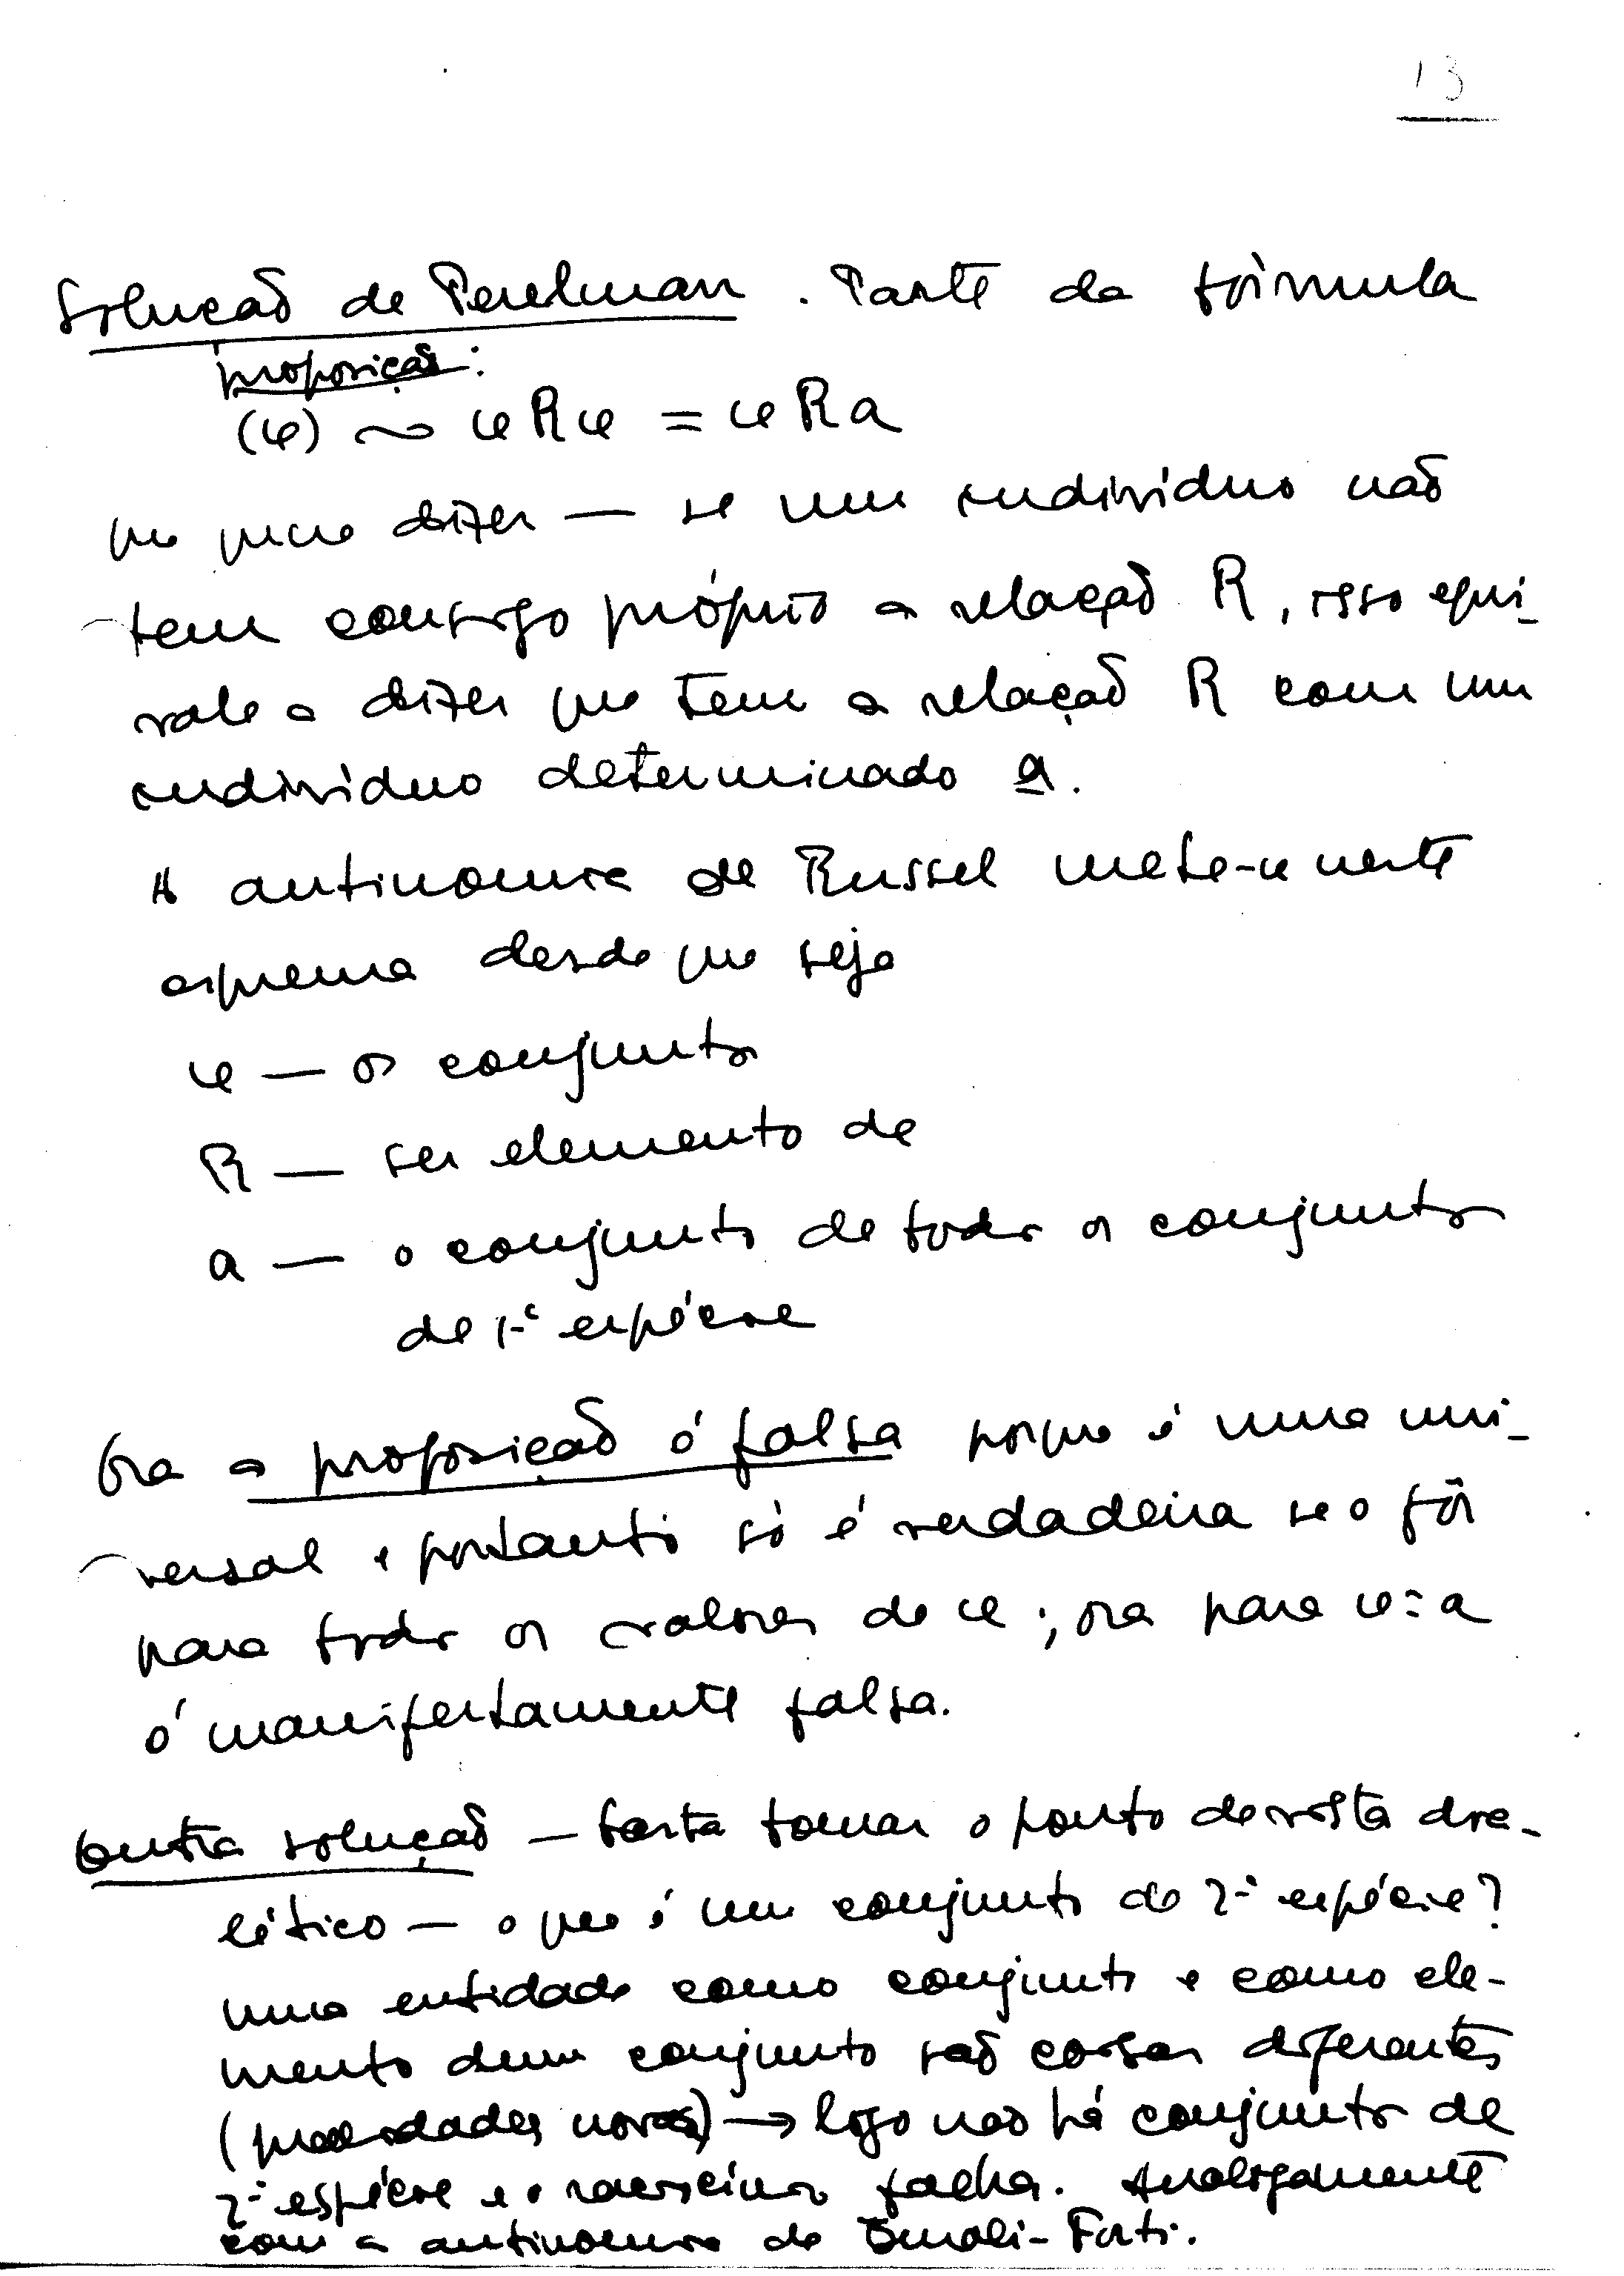 13
Solução de Perelman. Parte da fórmula
proposição:
(φ) ~ φRφ = φRa
que quere dizer — se um indivíduo não
tem consigo próprio a relação R, isso equi-
vale a dizer que tem a relação R com um
indivíduo determinado a.
A antinomia de Russel mete-se neste
esquema desde que seja
φ — os conjuntos
R — ser elemento de
a — o conjunto de todos os conjuntos
de 1ª espécie
Ora a proposição é falsa porque é uma uni-
versal e portanto só é verdadeira se o fôr
para todos os valores de φ; ora para φ = a
é manifestamente falsa.
Outra solução — basta tomar o ponto de vista dia-
lético — o que é um conjunto de 2ª espécie?
uma entidade como conjunto e como ele-
mento dum conjunto são coisas diferentes
(qualidades novas) → logo não há conjuntos de
2ª espécie e o raciocínio falha. Analogamente
com a antinomia de Burali-Forti.